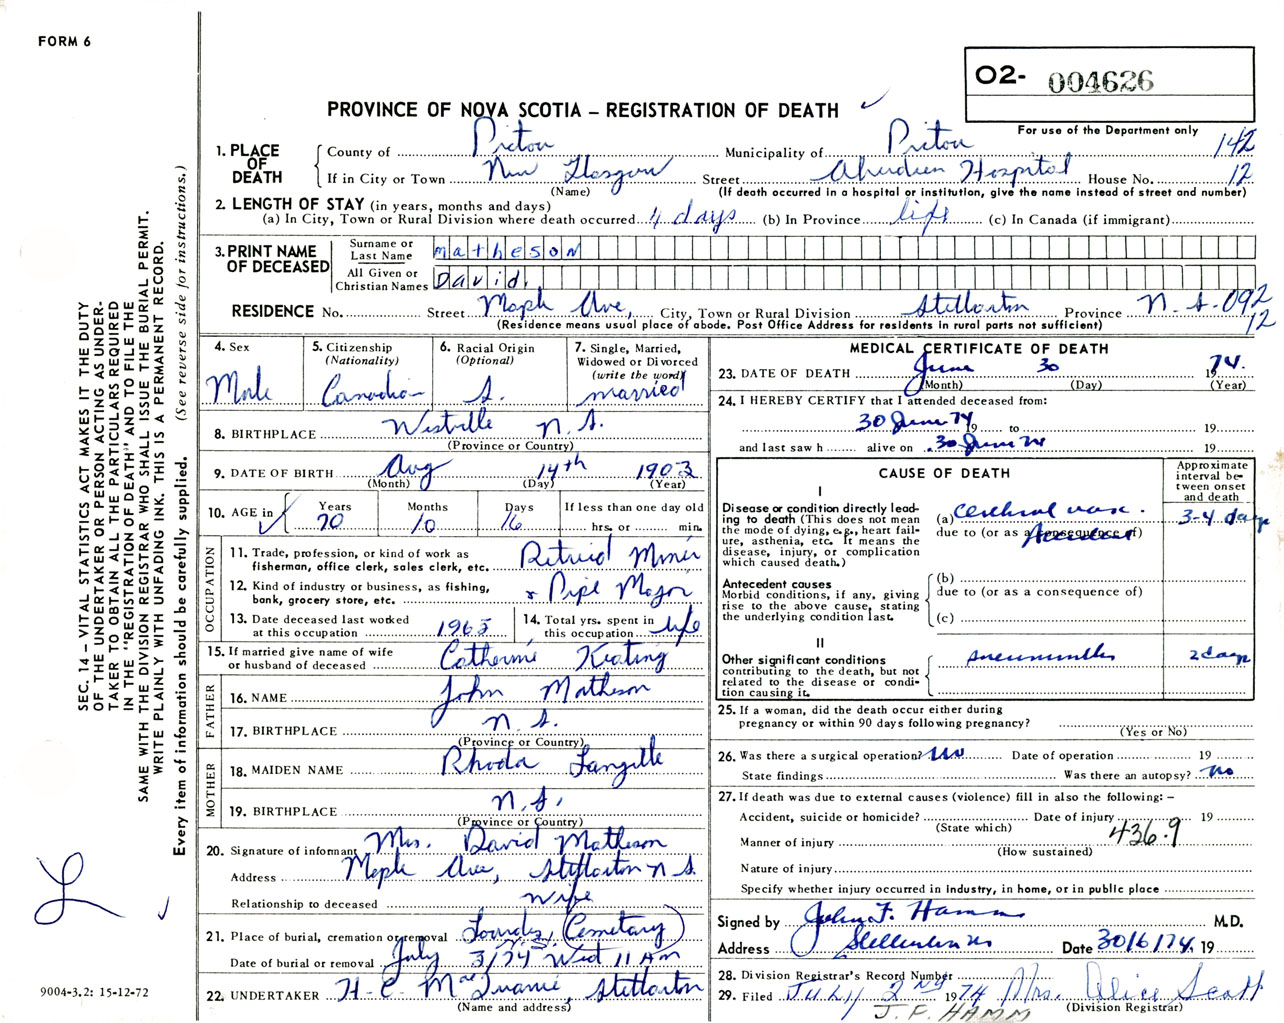 FORM 6
O2- 004626
For use of the Department only
PROVINCE OF NOVA SCOTIA – REGISTRATION OF DEATH ✓
1. PLACE OF DEATH
County of Pictou Municipality of Pictou 142
If in City or Town New Glasgow Street Aberdeen Hospital House No. 12
(Name) (If death occurred in a hospital or institution, give the name instead of street and number)
2. LENGTH OF STAY (in years, months and days)
(a) In City, Town or Rural Division where death occurred 4 days (b) In Province life (c) In Canada (if immigrant)
3. PRINT NAME OF DECEASED
Surname or Last Name Matheson
All Given or Christian Names David.
RESIDENCE No. Street Maple Ave, City, Town or Rural Division Stellarton Province N. S. 092
12
(Residence means usual place of abode. Post Office Address for residents in rural parts not sufficient)
4. Sex
Male
5. Citizenship
(Nationality)
Canadian
6. Racial Origin
(Optional)
S.
7. Single, Married,
Widowed or Divorced
(write the word)
married
8. BIRTHPLACE Westville N. S.
(Province or Country)
9. DATE OF BIRTH Aug 14th 1903
(Month) (Day) (Year)
10. AGE in
Years Months Days If less than one day old
70 10 16 hrs. or min.
OCCUPATION
11. Trade, profession, or kind of work as
fisherman, office clerk, sales clerk, etc. Retired Miner
12. Kind of industry or business, as fishing,
bank, grocery store, etc. & Pipe Major
13. Date deceased last worked
at this occupation 1965
14. Total yrs. spent in
this occupation life
15. If married give name of wife
or husband of deceased Catherine Keating
FATHER
16. NAME John Matheson
17. BIRTHPLACE N. S.
(Province or Country)
MOTHER
18. MAIDEN NAME Rhoda Langille
19. BIRTHPLACE N. S.
(Province or Country)
20. Signature of informant Mrs. David Matheson
Address Maple Ave, Stellarton N. S.
Relationship to deceased Wife
21. Place of burial, cremation or removal Lourdes (Cemetary)
N. S.
Date of burial or removal July 3/74 Wed 11 AM
22. UNDERTAKER H. C. Stellarton
(Name and address)
MEDICAL CERTIFICATE OF DEATH
23. DATE OF DEATH June 30 1974.
(Month) (Day) (Year)
24. I HEREBY CERTIFY that I attended deceased from:
30 June 74 19 to 19
and last saw h alive on 30 June 74 19
CAUSE OF DEATH
Approximate
interval be-
tween onset
and death
I
Disease or condition directly lead-
ing to death (This does not mean
the mode of dying, e.g., heart fail-
ure, asthenia, etc. It means the
disease, injury, or complication
which caused death.)
(a) Cerebral vasc. 3-4 days
due to (or as a consequence of) Accident
Antecedent causes
Morbid conditions, if any, giving
rise to the above cause, stating
the underlying condition last.
(b)
due to (or as a consequence of)
(c)
II
Other significant conditions
contributing to the death, but not
related to the disease or condi-
tion causing it.
pneumonitis 2 days
25. If a woman, did the death occur either during
pregnancy or within 90 days following pregnancy?
(Yes or No)
26. Was there a surgical operation? No Date of operation 19
State findings Was there an autopsy? No
27. If death was due to external causes (violence) fill in also the following: –
Accident, suicide or homicide? Date of injury 19
(State which)
436.9
Manner of injury
(How sustained)
Nature of injury
Specify whether injury occurred in industry, in home, or in public place
Signed by John F. Hamm M.D.
Address Stellarton NS Date 30/6/74. 19
28. Division Registrar's Record Number
29. Filed July 2nd 1974 Mrs. Alice Scott
(Division Registrar)
J. F. HAMM
SEC. 14 – VITAL STATISTICS ACT MAKES IT THE DUTY
OF THE UNDERTAKER OR PERSON ACTING AS UNDER-
TAKER TO OBTAIN ALL THE PARTICULARS REQUIRED
IN THE "REGISTRATION OF DEATH" AND TO FILE THE
SAME WITH THE DIVISION REGISTRAR WHO SHALL ISSUE THE BURIAL PERMIT.
WRITE PLAINLY WITH UNFADING INK. THIS IS A PERMANENT RECORD.
Every item of information should be carefully supplied. (See reverse side for instructions.)
L ✓
9004-3.2: 15-12-72